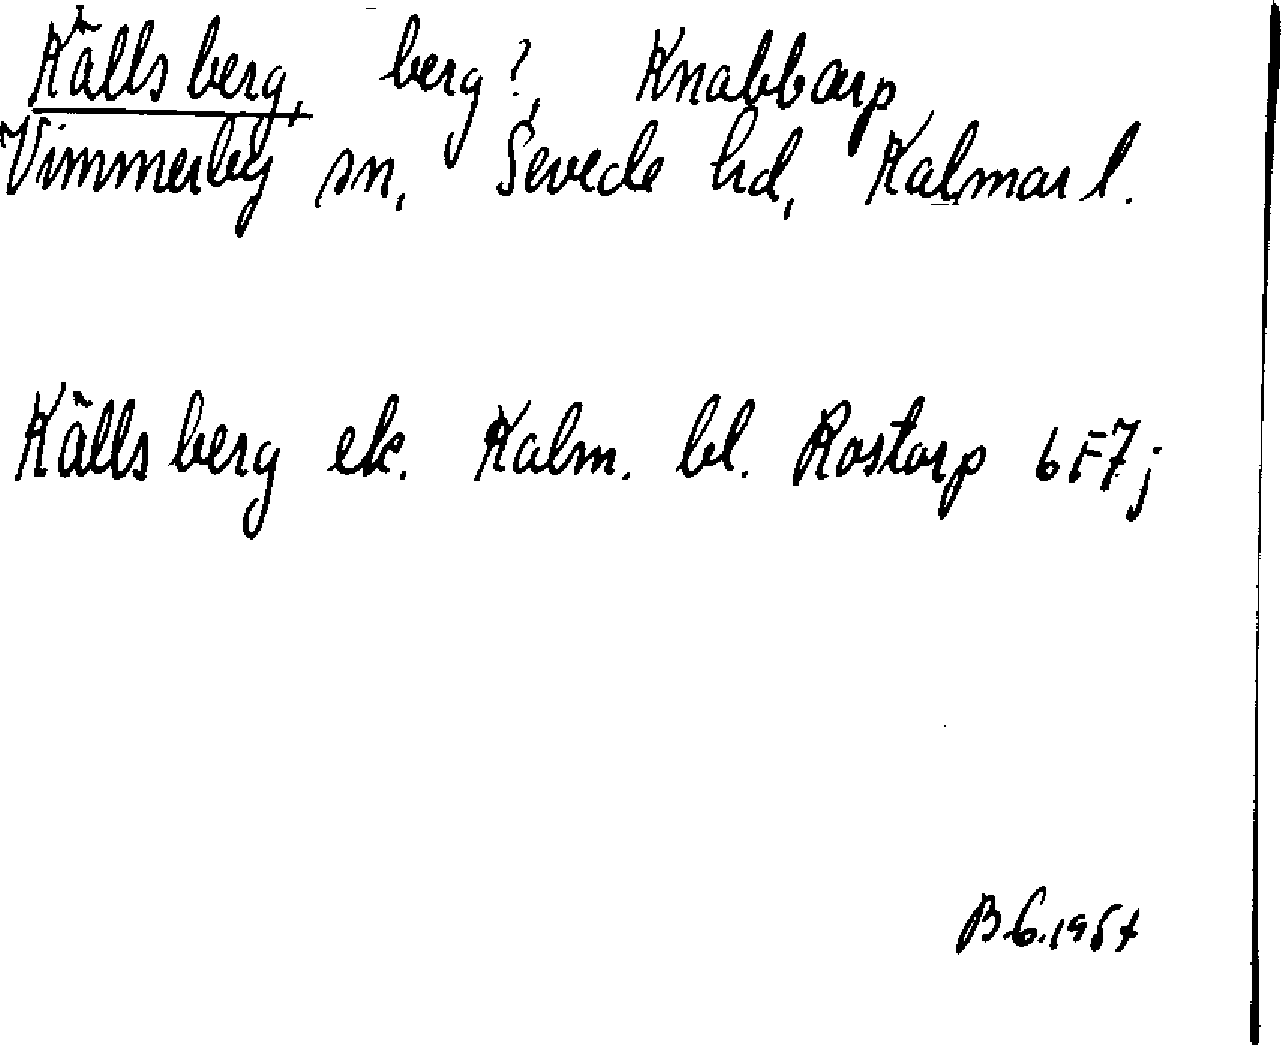 Källsberg, berg?, Knabbarp
Vimmerby sn, Sevede hd, Kalmar l.
Källsberg ek. Kalm. bl. Rostorp 6F7j